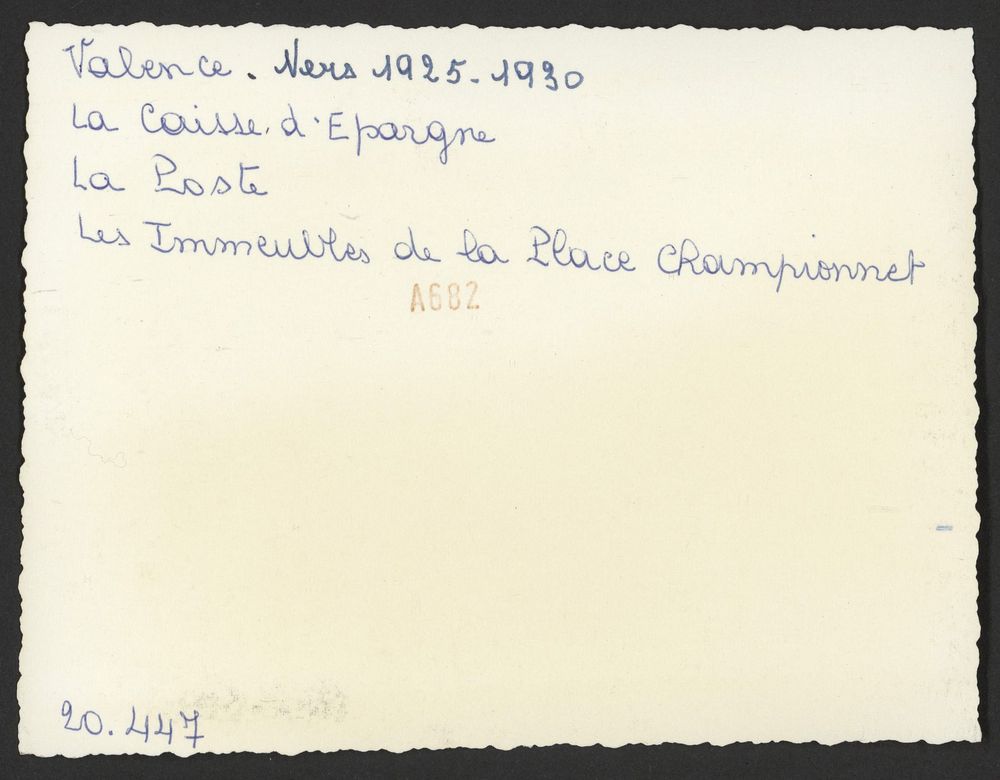 Valence. Vers 1925-1930
La Caisse d'Epargne
La Poste
Les Immeubles de la Place Championnet
A682
20.447